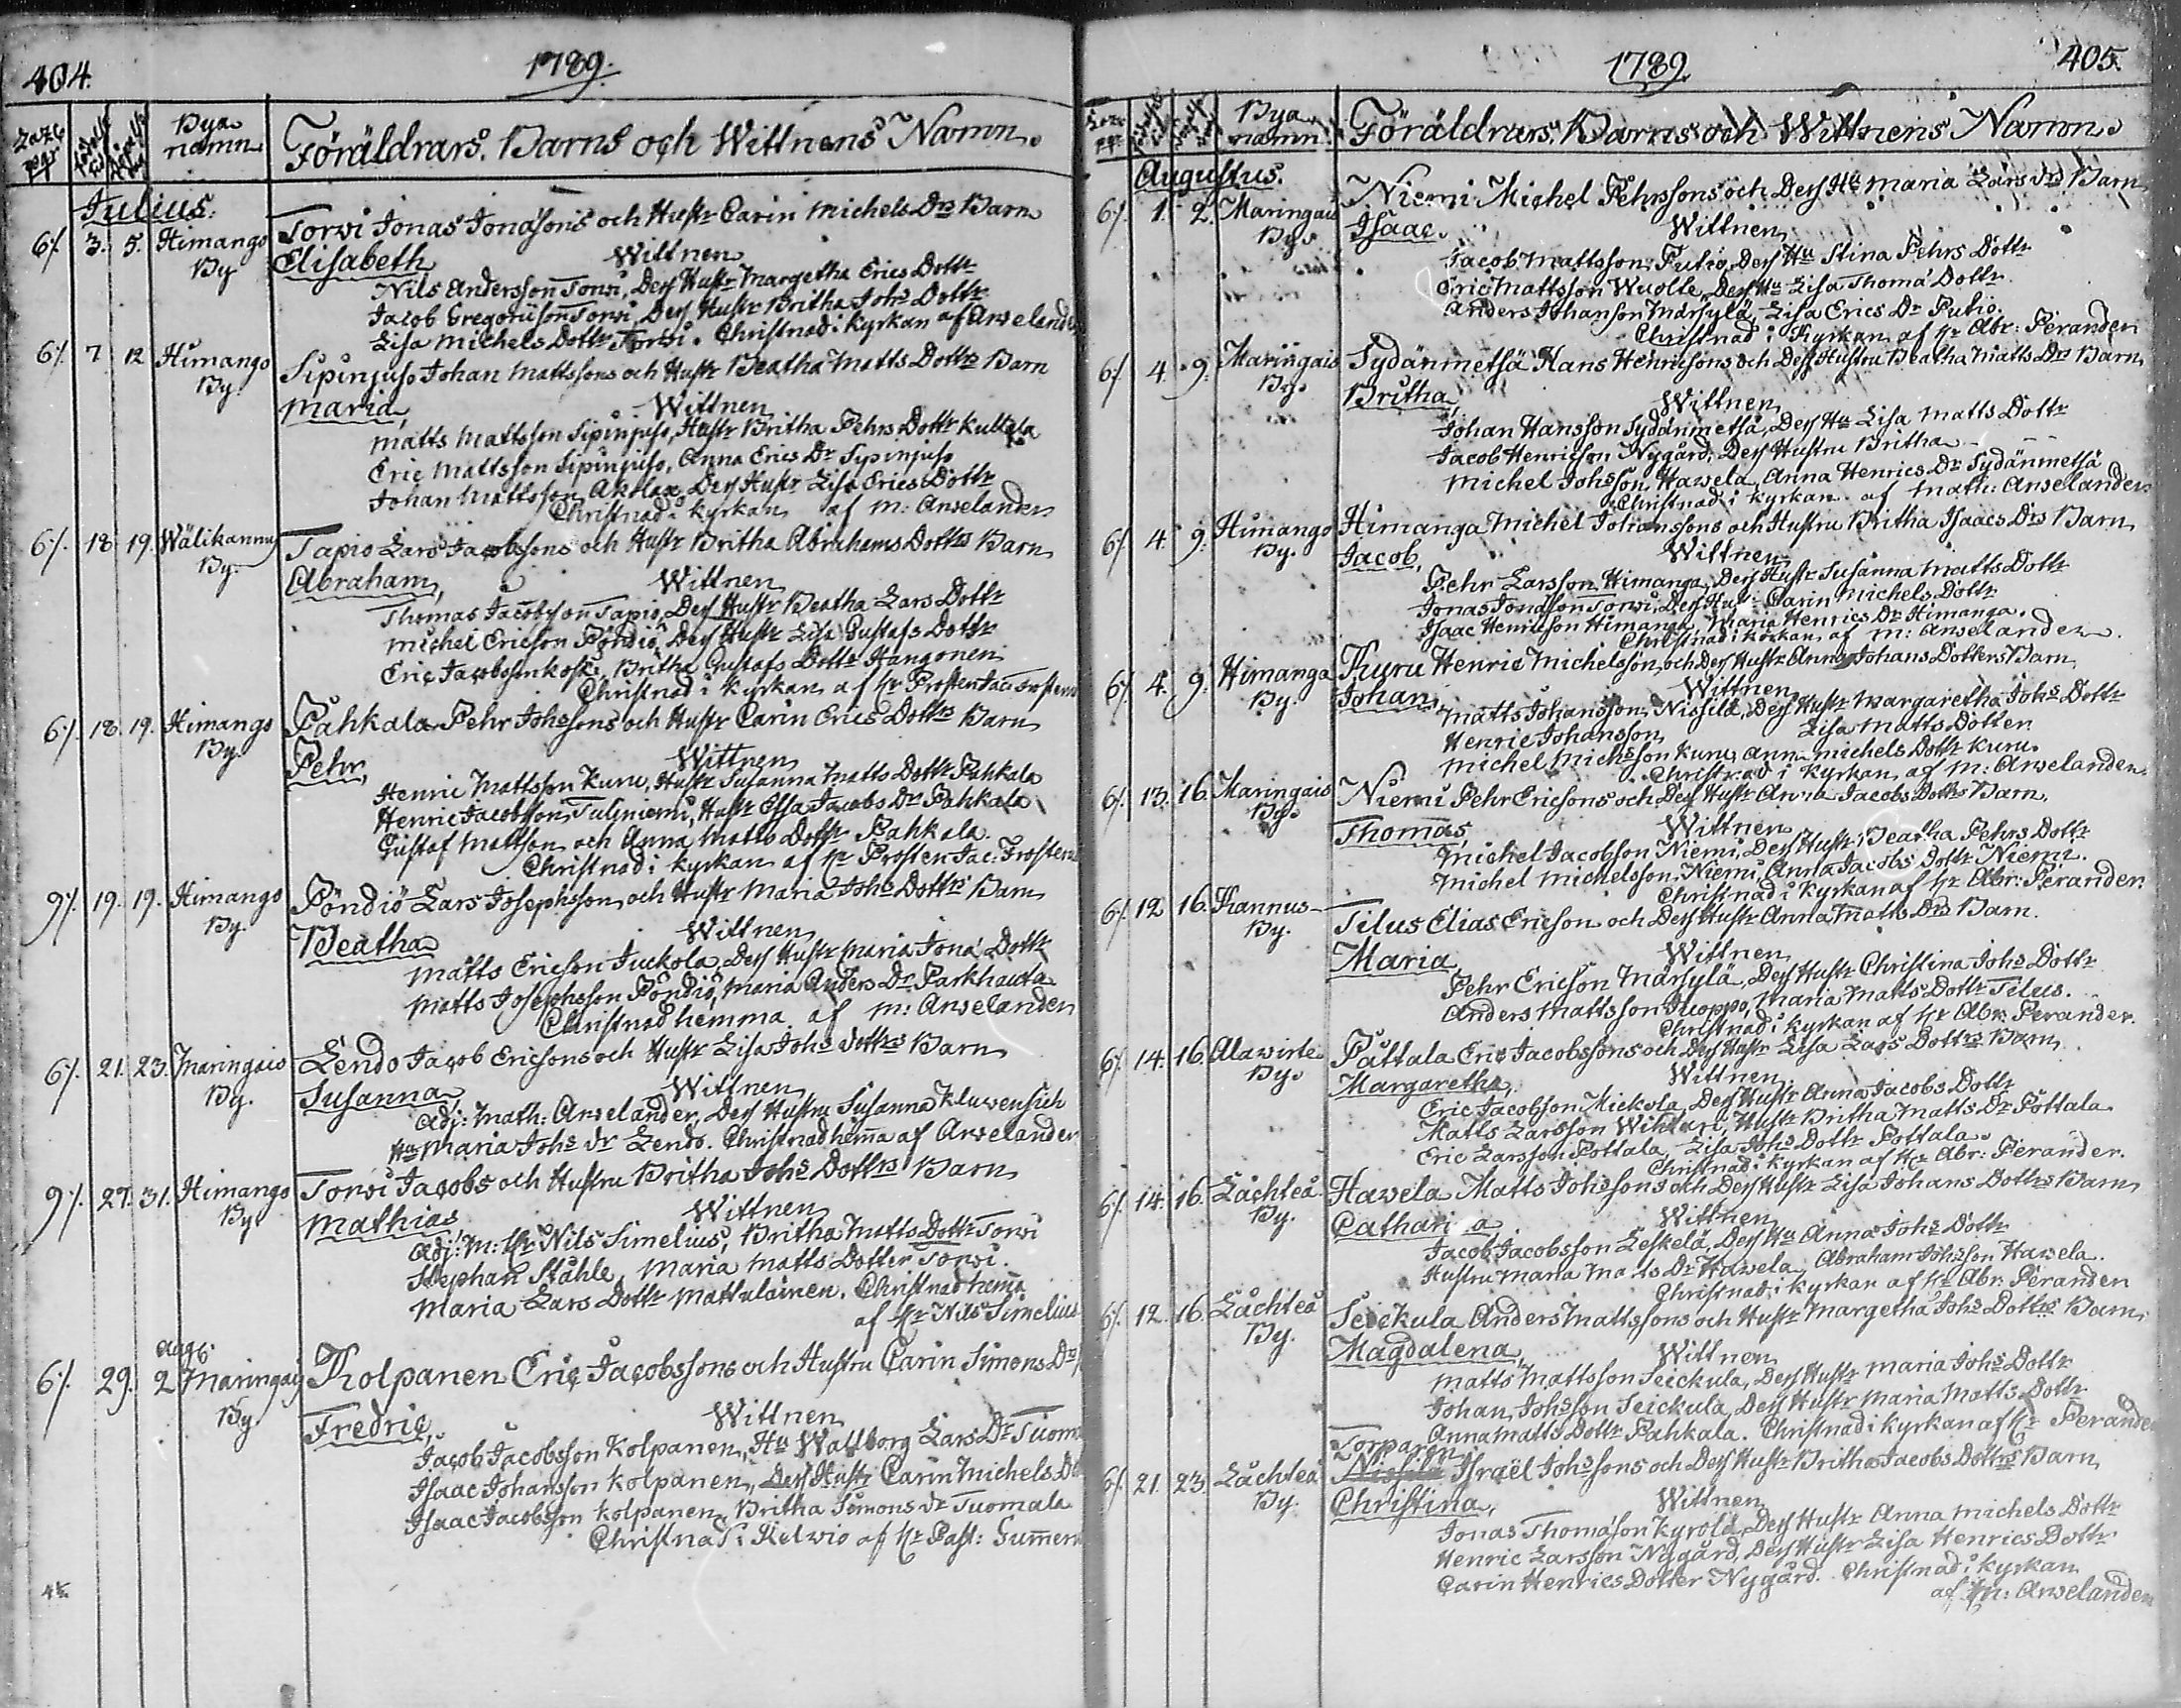 404.
1789.
Föräldrars. Barns och Wittnens Namn.
Bya namn
Julius.
6/. 3. 5. Himango By Torvi Jonas Jonæsons och Hustr Carin Michels Drs Barn
Elisabeth Wittnen
Nils Andersson Torvi, Dess Hustr Margetha Erics Dottr
Jacob Gregorii son Torvi, Dess Hustr Britha Johs Dottr
Lisa Michels Dottr Torvi. Christnad i kyrkan af Arvelander
6/. 7 12 Himango By. Sipinjuso Johan Mattssons och Hustr Beatha Matts Dottrs Barn
Maria, Wittnen
Matts Mattsson Sipinjuso, Hustr Britha Pehrs Dottr Kultala
Eric Mattsson Sipinjuso, Anna Erics Dr Sypinjuso
Johan Mattsson Aktlax, Dess Hustr Lisa Erics Dottr
Christnad i kyrkan af M: Arvelander
6/. 18 19. Wälikannus By. Tapio Lars Jacobssons och Hustr Britha Abrahams Dottrs Barn
Abraham, Wittnen
Thomas Jacobsson Tapio, Dess Hustr Beatha Lars Dottr
Michel Ericson Pöndiö, Dess Hustr Lisa Gustafs Dottr
Eric Jacobsson Koski, Britha Gustafs Dottr Hangonen
Christnad i kyrkan af Hr Prosten Jac:
6/. 18. 19. Himango By. Pahkala Pehr Johssons och Hustr Carin Erics Dottrs Barn
Pehr, Wittnen
Henric Mattsson Kuru, Hustr Susanna Matts Dottr Pahkala
Henric Jacobsson Tuljniemi, Hustr Lisa Jacobs Dr Pahkala
Gustaf Mattson och Anna Matts Dottr Pahkala.
Christnad i kyrkan af Hr Prosten Jac: Frosterus
9/. 19. 19. Himango By. Pöndiö Lars Josephsson och Hustr Maria Johs Dottrs Barn
Beatha Wittnen
Matts Ericson Juckola, Dess Hustr Maria Jonæ Dottr
Matts Josephsson Pöndiö, Maria Anders Dr Parkhauta
Christnad hemma af M: Arvelander
6/. 21. 23. Maringais By. Lendo Jacob Ericsons och Hustr Lisa Johs Dottrs Barn
Susanna, Wittnen
Adj: Math: Arvelander, Dess Hustru Susanna Kluwensich
Hu Maria Johs Dr Lendo. Christnad hema af Arvelander
9/. 27. 31. Himango By Torvi Jacobs och Hustru Britha Johs Dottrs Barn
Mathias Wittnen
Adj: M: Hr Nils Simelius, Britha Matts Dottr Torvi
Stephan Ståhle, Maria Matts Dotter Torvi.
Maria Lars Dottr Mattulainen. Christnad hema
af Hr Nils Simelius
6/. 29. Aug. 2 Maringais By Kolpanen Eric Jacobssons och Hustru Carin Simons Drs
Fredric, Wittnen
Jacob Jacobsson Kolpanen, Hu Wallborg Lars Dr
Isaac Johansson Kolpanen, Dess Hustr Carin Michels
Isaac Jacobsson Kolpanen, Britha Simons Dr Tuomala
Christnad i Kelvio af Hr Past:
405.
1789.
Bya namn
Föräldrars. Barns och Wittnens Namn.
Augustus.
6/. 1. 2. Maringais By. Niemi Michel Pehrssons och Dess Hu Maria Lars Drs Barn
Isaac. Wittnen
Jacob Mattsson Putio, Dess Hu Stina Pehrs Dottr
Eric Mattsson Wuolle, Dess Hu Lisa Thomæ Dottr
Anders Johanson Märsylä, Lisa Erics Dr Putio.
Christnad i Kyrkan af Hr Abr: Perander
6/. 4. 9. Maringais By. Sydänmetsä Hans Henricsons och Dess Hustru Beatha Matts Drs Barn
Britha, Wittnen
Johan Hansson Sydänmetsä, Dess Hu Lisa Matts Dottr
Jacob Henricson Nygård, Dess Hustru Britha ---
Michel Johsson Hawela, Anna Henrics Dr Sydänmetsä
Christnad i kyrkan af Math: Arvelander
6/. 4. 9. Himango By. Himanga Michel Johanssons och Hustru Britha Isaacs Drs Barn
Jacob, Wittnen
Pehr Larsson Himanga, Dess Hustr Susanna Matts Dottr
Jonas Jonæson Torvi, Dess Hustr Carin Michels Dottr
Isaac Henricsson Himanga, Maria Henrics Dr Himanga.
Christnad i kyrkan af M: Arvelander.
6/. 4. 9. Himanga By. Kuru Henric Michelsson, och Dess Hustr Anna Johans Dotters Barn
Johan, Wittnen
Matts Johansson Nissilä, Dess Hustr Margaretha Johs Dottr
Henric Johansson, Lisa Matts Dotter
Michel Michsson Kuru, Anna Michels Dottr Kuru.
Christnad i kyrkan af M: Arvelander
6/. 13. 16. Maringais By. Niemi Pehr Ericsons och Dess Hustr Anna Jacobs Dottrs Barn.
Thomas, Wittnen
Michel Jacobson Niemi, Dess Hustr Beatha Pehrs Dottr
Michel Michelsson Niemi, Anna Jacobs Dottr Niemi.
Christnad i kyrkan af Hr Abr: Perander.
6/. 12 16. Kannus By. Tilus Elias Ericson och Dess Hustr Anna Matts Drs Barn.
Maria Wittnen
Pehr Ericson Märsylä, Dess Hustr Christina Johs Dottr
Anders Mattsson Juoppo, Maria Matts Dottr Tilus.
Christnad i kyrkan af Hr Abr. Perander.
6/. 14. 16. Alawirte By. Påttala Eric Jacobssons och Dess Hustr Lisa Lars Dottrs Barn
Margaretha, Wittnen
Eric Jacobson Mickola, Dess Hustr Anna Jacobs Dottr
Matts Larsson Wihtari, Hustr Britha Matts Dr Pottala
Eric Larsson Pottala, Lisa Johs Dottr Pottala.
Christnad i kyrkan af Hr Abr: Perander.
6/. 14. 16. Låchteå By. Hawela Matts Johssons och Dess Hustr Lisa Johans Dottrs Barn
Cathari a Wittnen
Jacob Jacobsson Leskelä, Dess Hu Anna Johs Dottr
Hustru Maria Matts Dr Hawela, Abraham Johsson Hawela.
Christnad i kyrkan af Hr Abr. Perander
6/. 12. 16. Låchteå By. Seickula Anders Mattssons och Hustr Margetha Johs Dottrs Barn
Magdalena, Wittnen
Matts Mattsson Seickula, Dess Hustr Maria Johs Dottr
Johan Johsson Seickula, Dess Hustr Maria Matts Dottr
Anna Matts Dottr Pahkala. Christnad i kyrkan af Hr Perander
Torparen
6/. 21. 23. Låchteå By. Nissilä Israël Johssons och Dess Hustr Britha Jacobs Dottrs Barn
Christina, Wittnen
Jonas Thomæson Kyrölä, Dess Hustr Anna Michels Dottr
Henric Larsson Nygård, Dess Hustr Lisa Henrics Dottr
Carin Henrics Dotter Nygård. Christnad i kyrkan
af M: Arvelander